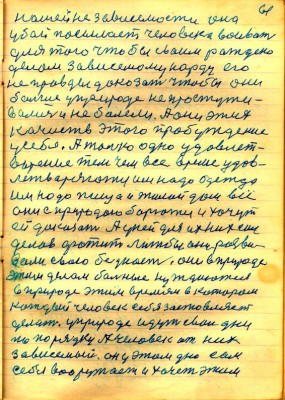 61
нашей не зависемости она
убай посилает человека воиват
для того чтобы своим рождено
делам зависемому народу его
неправды доказат чтобы они
болше уприроде не простути-
валися и небалели. А они этих
качиств этого пробуждение
усебя. А только одно удовлет-
варение тем чем все время удов-
летваряютси им надо одежда
им надо пища и жилой дом всё
они с природою борютси и хочут
ей доказать А у ней для их них сил
делов хватит лижбы они розви-
вали свою бедност. они в природе
этим делам болные нуждаютси
в природе этим времям в котором
каждый человек себя застовляет
делат. уприроде идут свои дни
по порядку А человек от них
зависемый. он у этом дню сам
себя вооружает и хочет этим